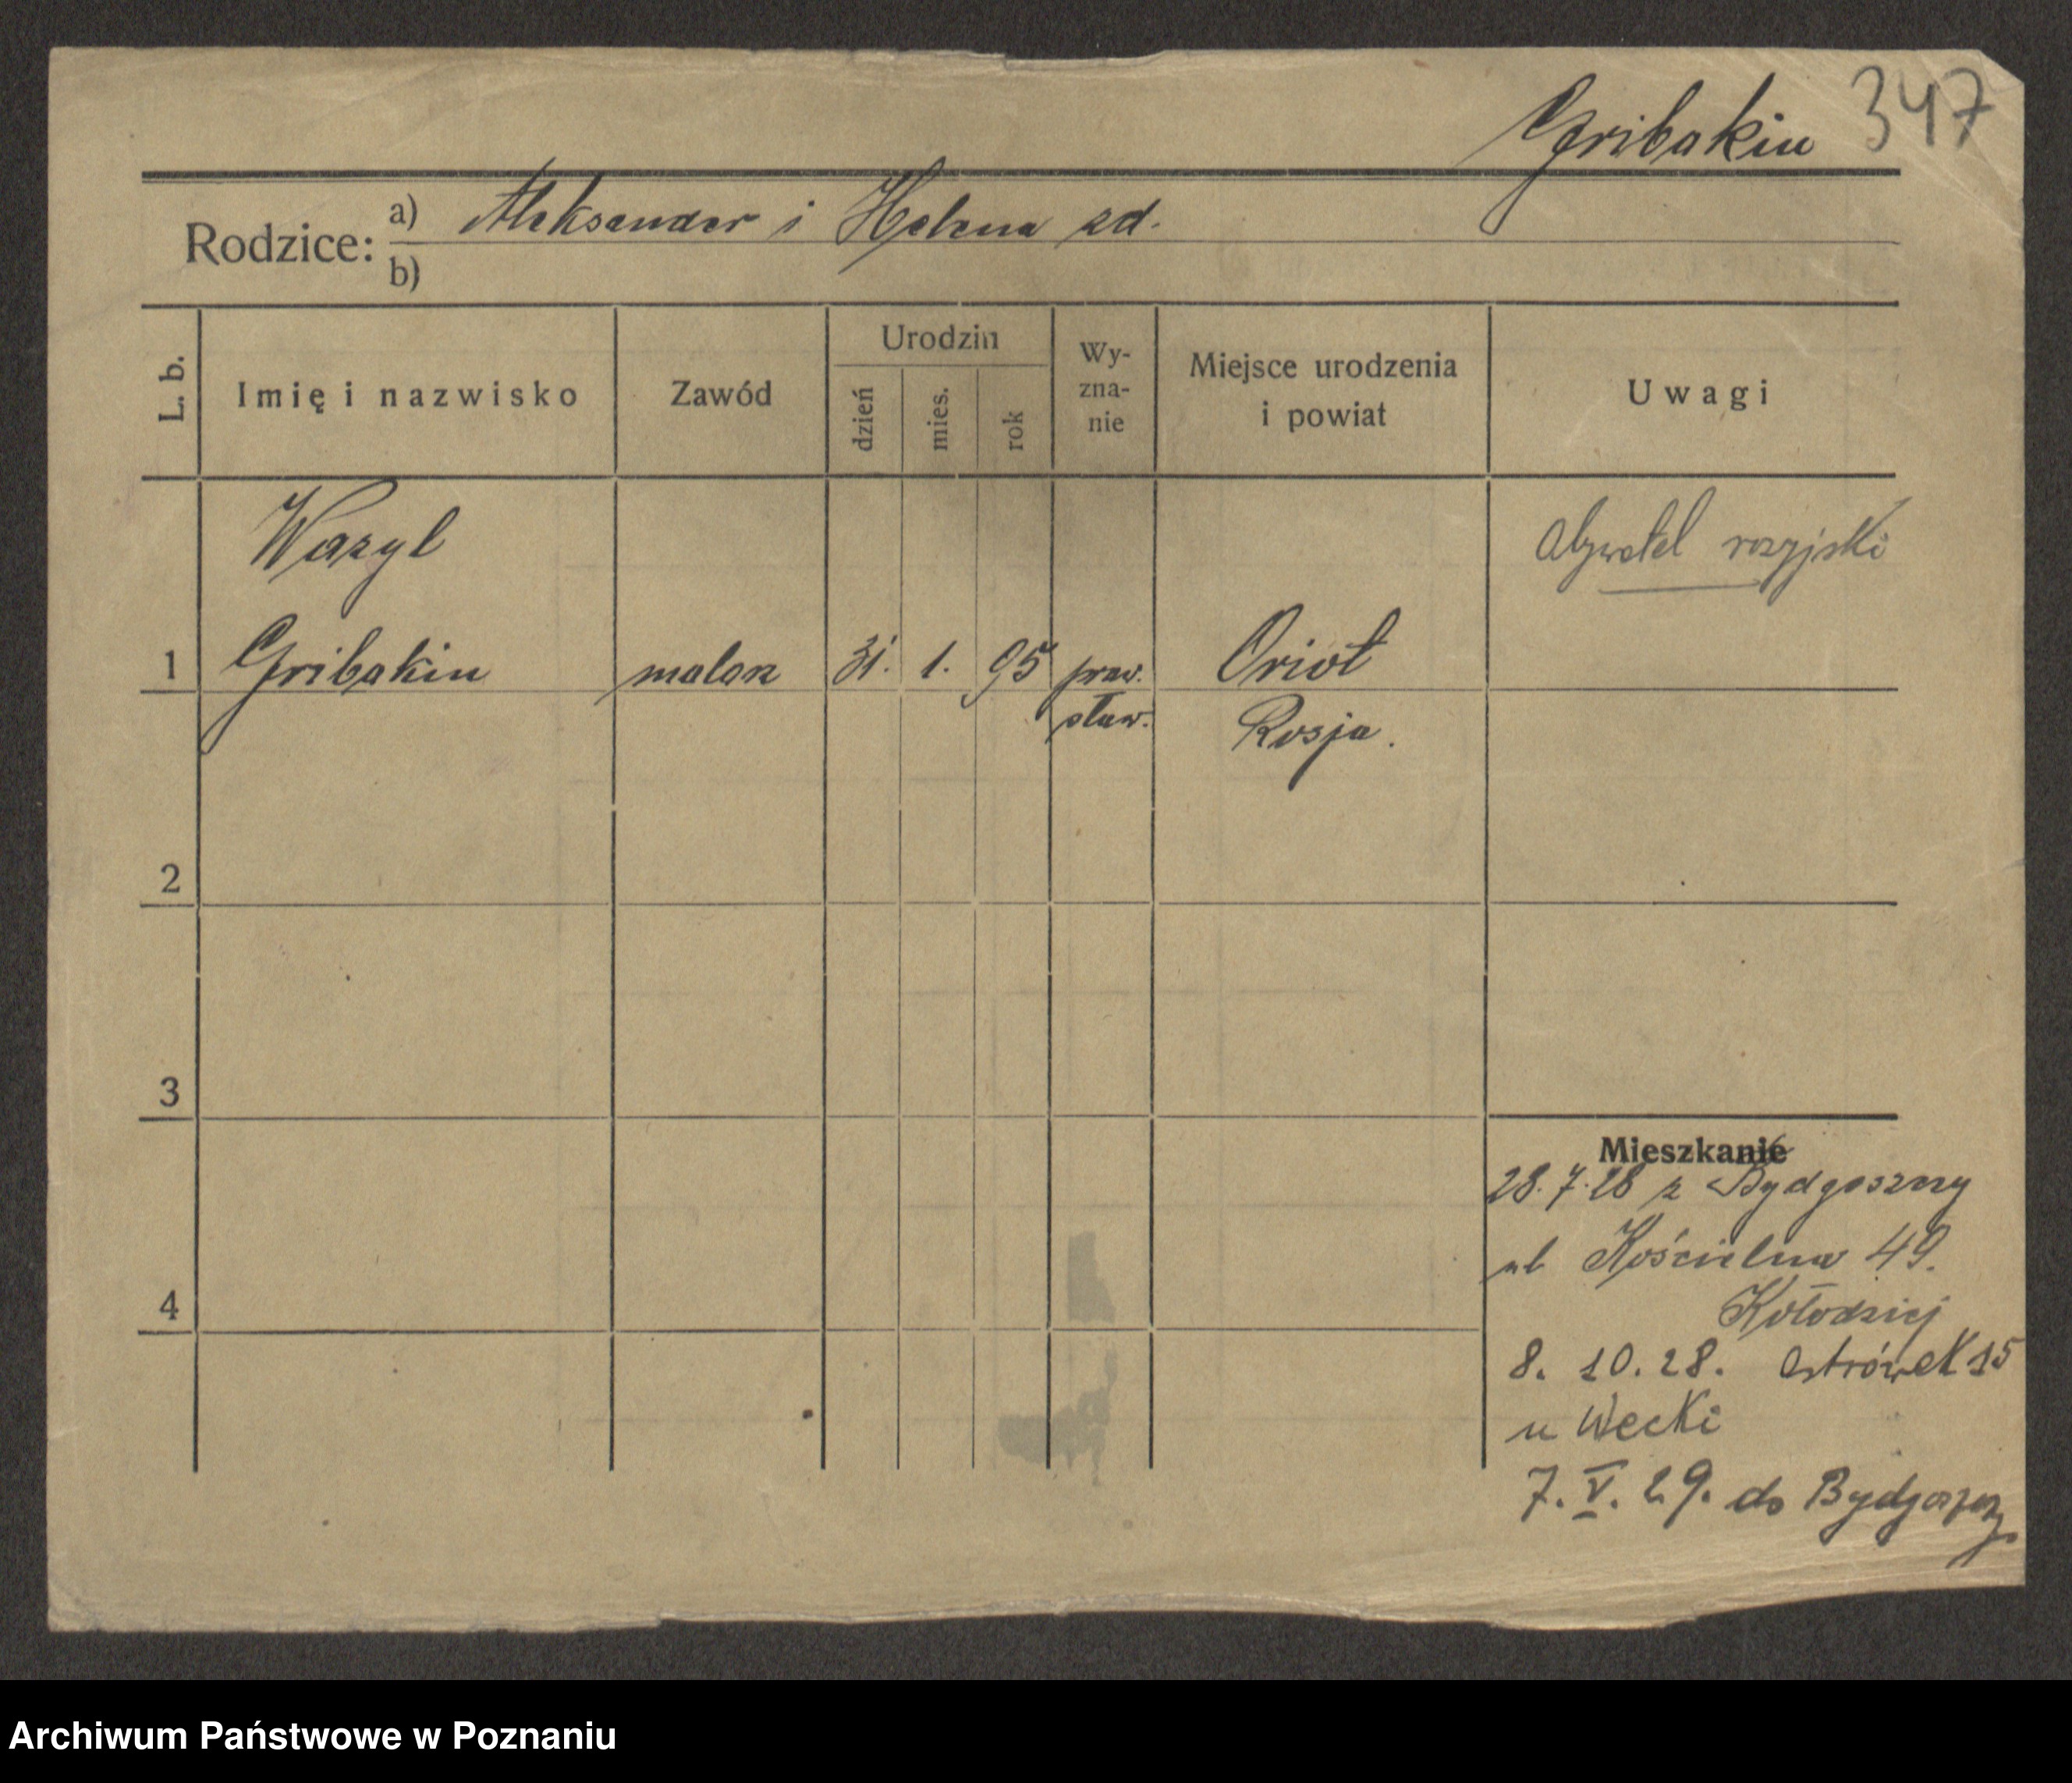 Gribakin 347
Rodzice: a) Aleksander i Helena zd.
b)
L. b. Imię i nazwisko Zawód Urodzin dzień mies. rok Wy-zna-nie Miejsce urodzenia i powiat Uwagi
Wazyl
Obywatel rosyjski
1 Gribakin malarz 31. 1. 95 praw. Orioł
sław. Rosja.
2
3
Mieszkanie
28.7.28 z Bydgoszczy
ul Kościelna 49.
Kołodziej
4
8. 10. 28. Ostrówek 15
u Wecki
7. V. 29. do Bydgoszczy
Archiwum Państwowe w Poznaniu